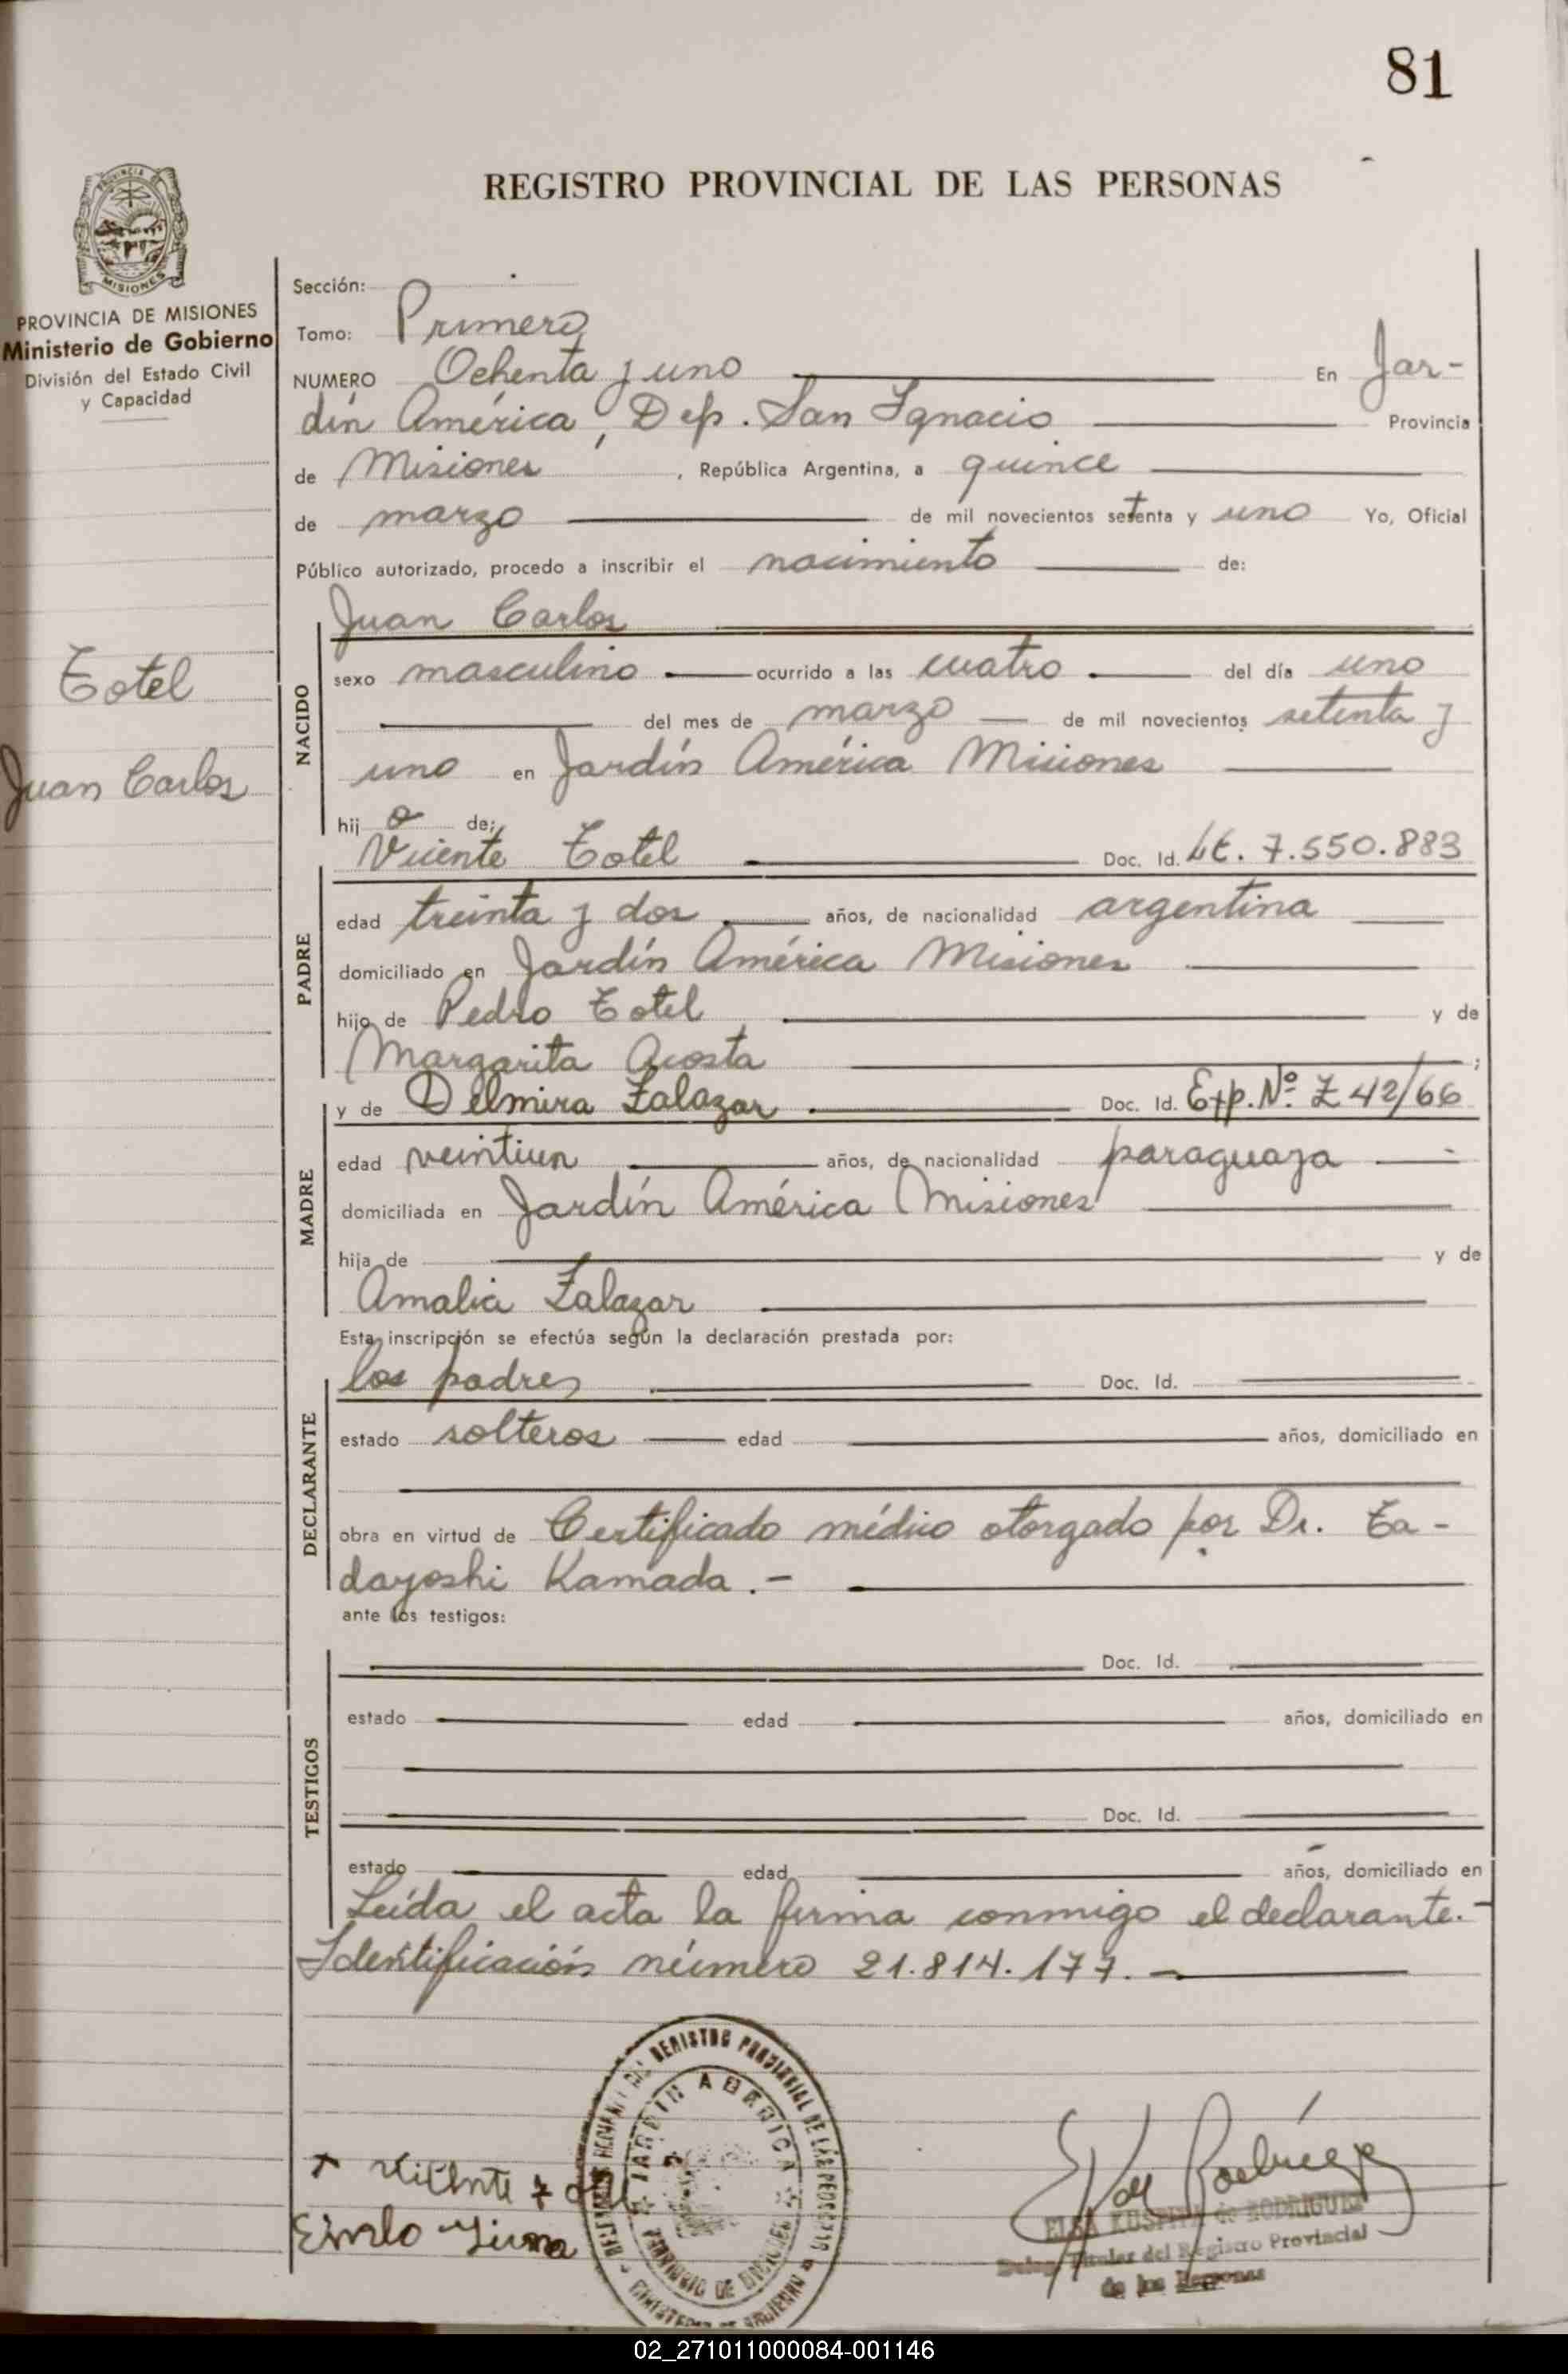 81
REGISTRO PROVINCIAL DE LAS PERSONAS
PROVINCIA DE
MISIONES
PROVINCIA DE MISIONES
Ministerio de Gobierno
División del Estado Civil
y Capacidad
Totel
Juan Carlos
Sección:
Tomo: Primero
NUMERO Ochenta y uno En Jar-
dín América, Dep. San Ignacio Provincia
de Misiones, República Argentina, a quince
de marzo de mil novecientos setenta y uno Yo, Oficial
Público autorizado, procedo a inscribir el nacimiento de:
Juan Carlos
NACIDO
sexo masculino ocurrido a las cuatro del día uno
del mes de marzo de mil novecientos setenta y
uno en Jardín América Misiones
hij o de:
Vicente Totel Doc. Id. Lt. 7.550.883
PADRE
edad treinta y dos años, de nacionalidad argentina
domiciliado en Jardín América Misiones
hijo de Pedro Totel y de
Margarita Acosta ;
y de Delmira Zalazar Doc. Id. Exp. Nº Z 42/66
MADRE
edad veintiun años, de nacionalidad paraguaya
domiciliada en Jardín América Misiones
hija de y de
Amalia Zalazar
Esta inscripción se efectúa según la declaración prestada por:
los padres Doc. Id.
DECLARANTE
estado solteros edad años, domiciliado en
obra en virtud de Certificado médico otorgado por Dr. Ta-
dayoshi Kamada.-
ante los testigos:
TESTIGOS
Doc. Id.
estado edad años, domiciliado en
Doc. Id.
estado edad años, domiciliado en
Leída el acta la firma conmigo el declarante.-
Identificación número 21.814.177.-
REGISTRO PROVINCIAL DE LAS PERSONAS
JARDIN AMERICA
Vicente
ELSA de RODRIGUEZ
Titular del Registro Provincial
de las Personas
02_271011000084-001146